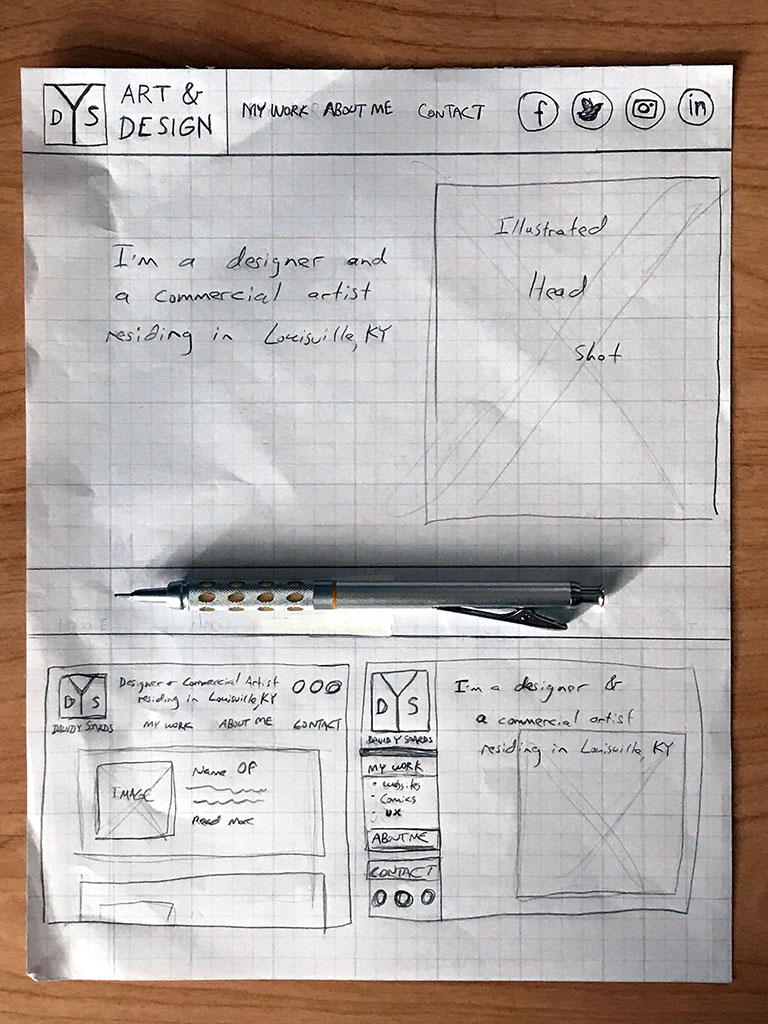 DYS
ART &
DESIGN
MY WORK ABOUT ME CONTACT
f
in
Illustrated
Head
Shot
I'm a designer and
a commercial artist
residing in Louisville, KY
DYS
DAVID Y SOARDS
Designer + Commercial Artist
residing in Louisville, KY
MY WORK ABOUT ME CONTACT
IMAGE
Name OF
Read More
DYS
DAVID Y SOARDS
MY WORK
· Websites
· Comics
· UX
ABOUT ME
CONTACT
I'm a designer &
a commercial artist
residing in Louisville, KY